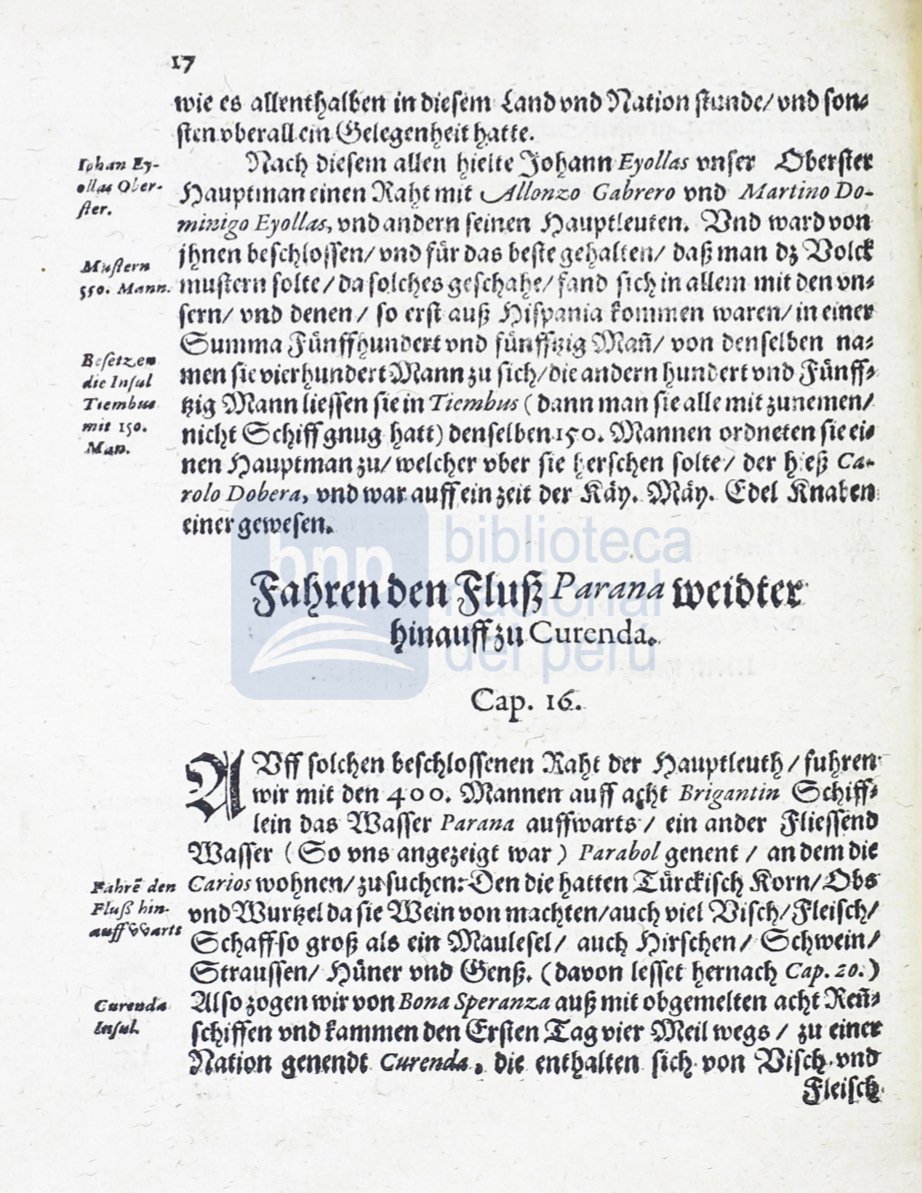 17
wie es allenthalben in diesem Land vnd Nation stunde/ vnd son-
sten vberall ein Gelegenheit hatte.
Iohan Ey-
ollas Ober-
ster.
Nach diesem allen hielte Johann Eyollas vnser Oberster
Hauptman einen Raht mit Allonzo Gabrero vnd Martino Do-
minigo Eyollas, vnd andern seinen Hauptleuten. Vnd ward von
jhnen beschlossen/ vnd für das beste gehalten/ daß man dz Volck
Mustern
550. Mann.
mustern solte/ da solches geschahe/ fand sich in allem mit den vn-
sern/ vnd denen/ so erst auß Hispania kommen waren/ in einer
Summa Fünffhundert vnd fünfftzig Mañ/ von denselben na-
Besetzen
die Insul
Tiembus
mit 150.
Man.
men sie vierhundert Mann zu sich/ die andern hundert vnd Fünff-
tzig Mann liessen sie in Tiembus ( dann man sie alle mit zunemen/
nicht Schiff gnug hatt) denselben 150. Mannen ordneten sie ei-
nen Hauptman zu/ welcher vber sie herschen solte/ der hieß Ca-
rolo Dobera, vnd war auff ein zeit der Käy. Mäy. Edel Knaben
einer gewesen.
bnp biblioteca
nacional
del perú
Fahren den Fluß Parana weidter
hinauff zu Curenda.
Cap. 16.
AVff solchen beschlossenen Raht der Hauptleuth/ fuhren
wir mit den 400. Mannen auff acht Brigantin Schiff-
lein das Wasser Parana auffwarts/ ein ander Fliessend
Wasser ( So vns angezeigt war ) Parabol genent/ an dem die
Fahrẽ den
Fluß hin-
auffvvarts
Carios wohnen/ zu suchen: Den die hatten Türckisch Korn/ Obs
vnd Wurtzel da sie Wein von machten/ auch viel Visch/ Fleisch/
Schaff so groß als ein Maulesel/ auch Hirschen/ Schwein/
Straussen/ Hüner vnd Genß. (davon lesset hernach Cap. 20.)
Curenda
Insul.
Also zogen wir von Bona Speranza auß mit obgemelten acht Reñ-
schiffen vnd kammen den Ersten Tag vier Meil wegs/ zu einer
Nation genendt Curenda, die enthalten sich von Visch vnd
Fleisch